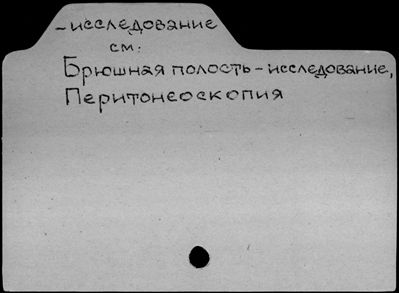 -исследование
см:
Брюшная полость – исследование,
Перитонеоскопия